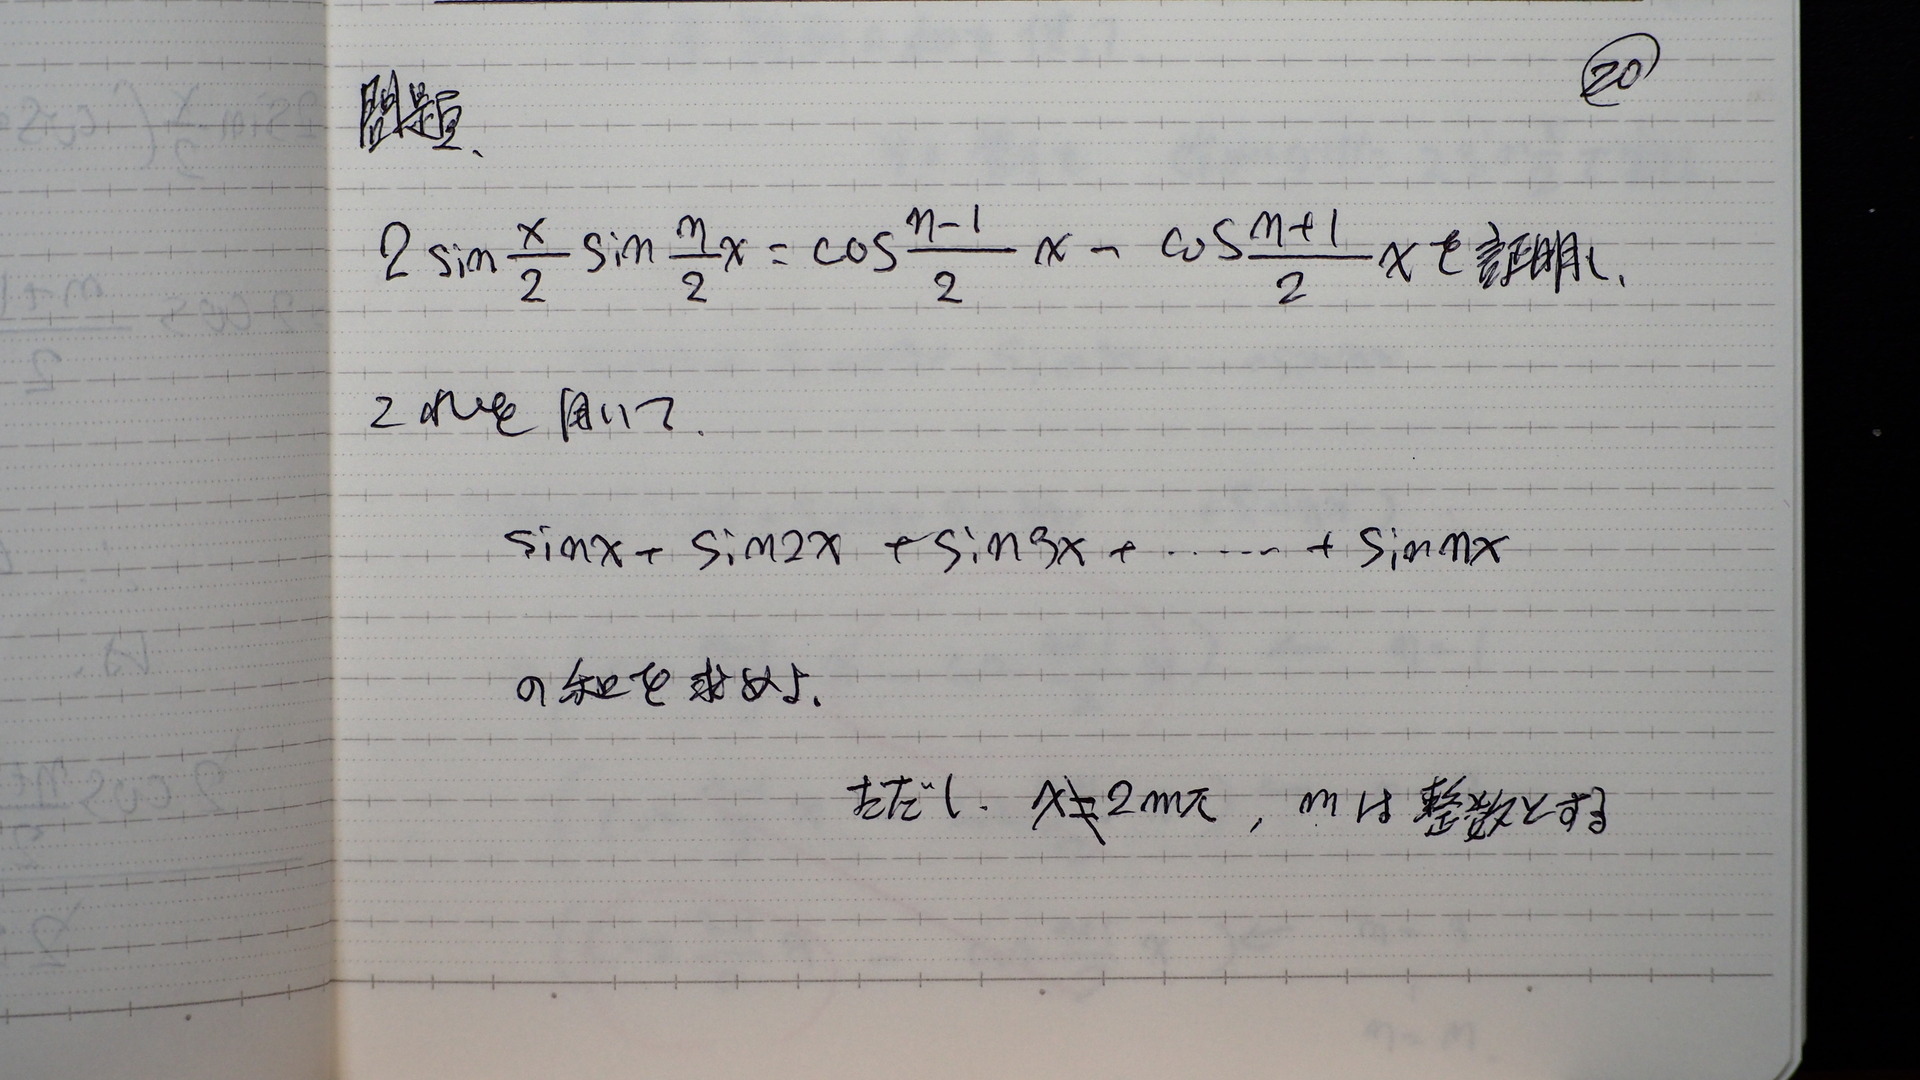 20
問題、
2 sin x/2 sin n/2 x = cos n-1/2 x - cos n+1/2 x を証明し、
これを用いて、
sinx + sin2x + sin3x + ...... + sinnx
の和を求めよ。
ただし、x≠2mπ, mは整数とする